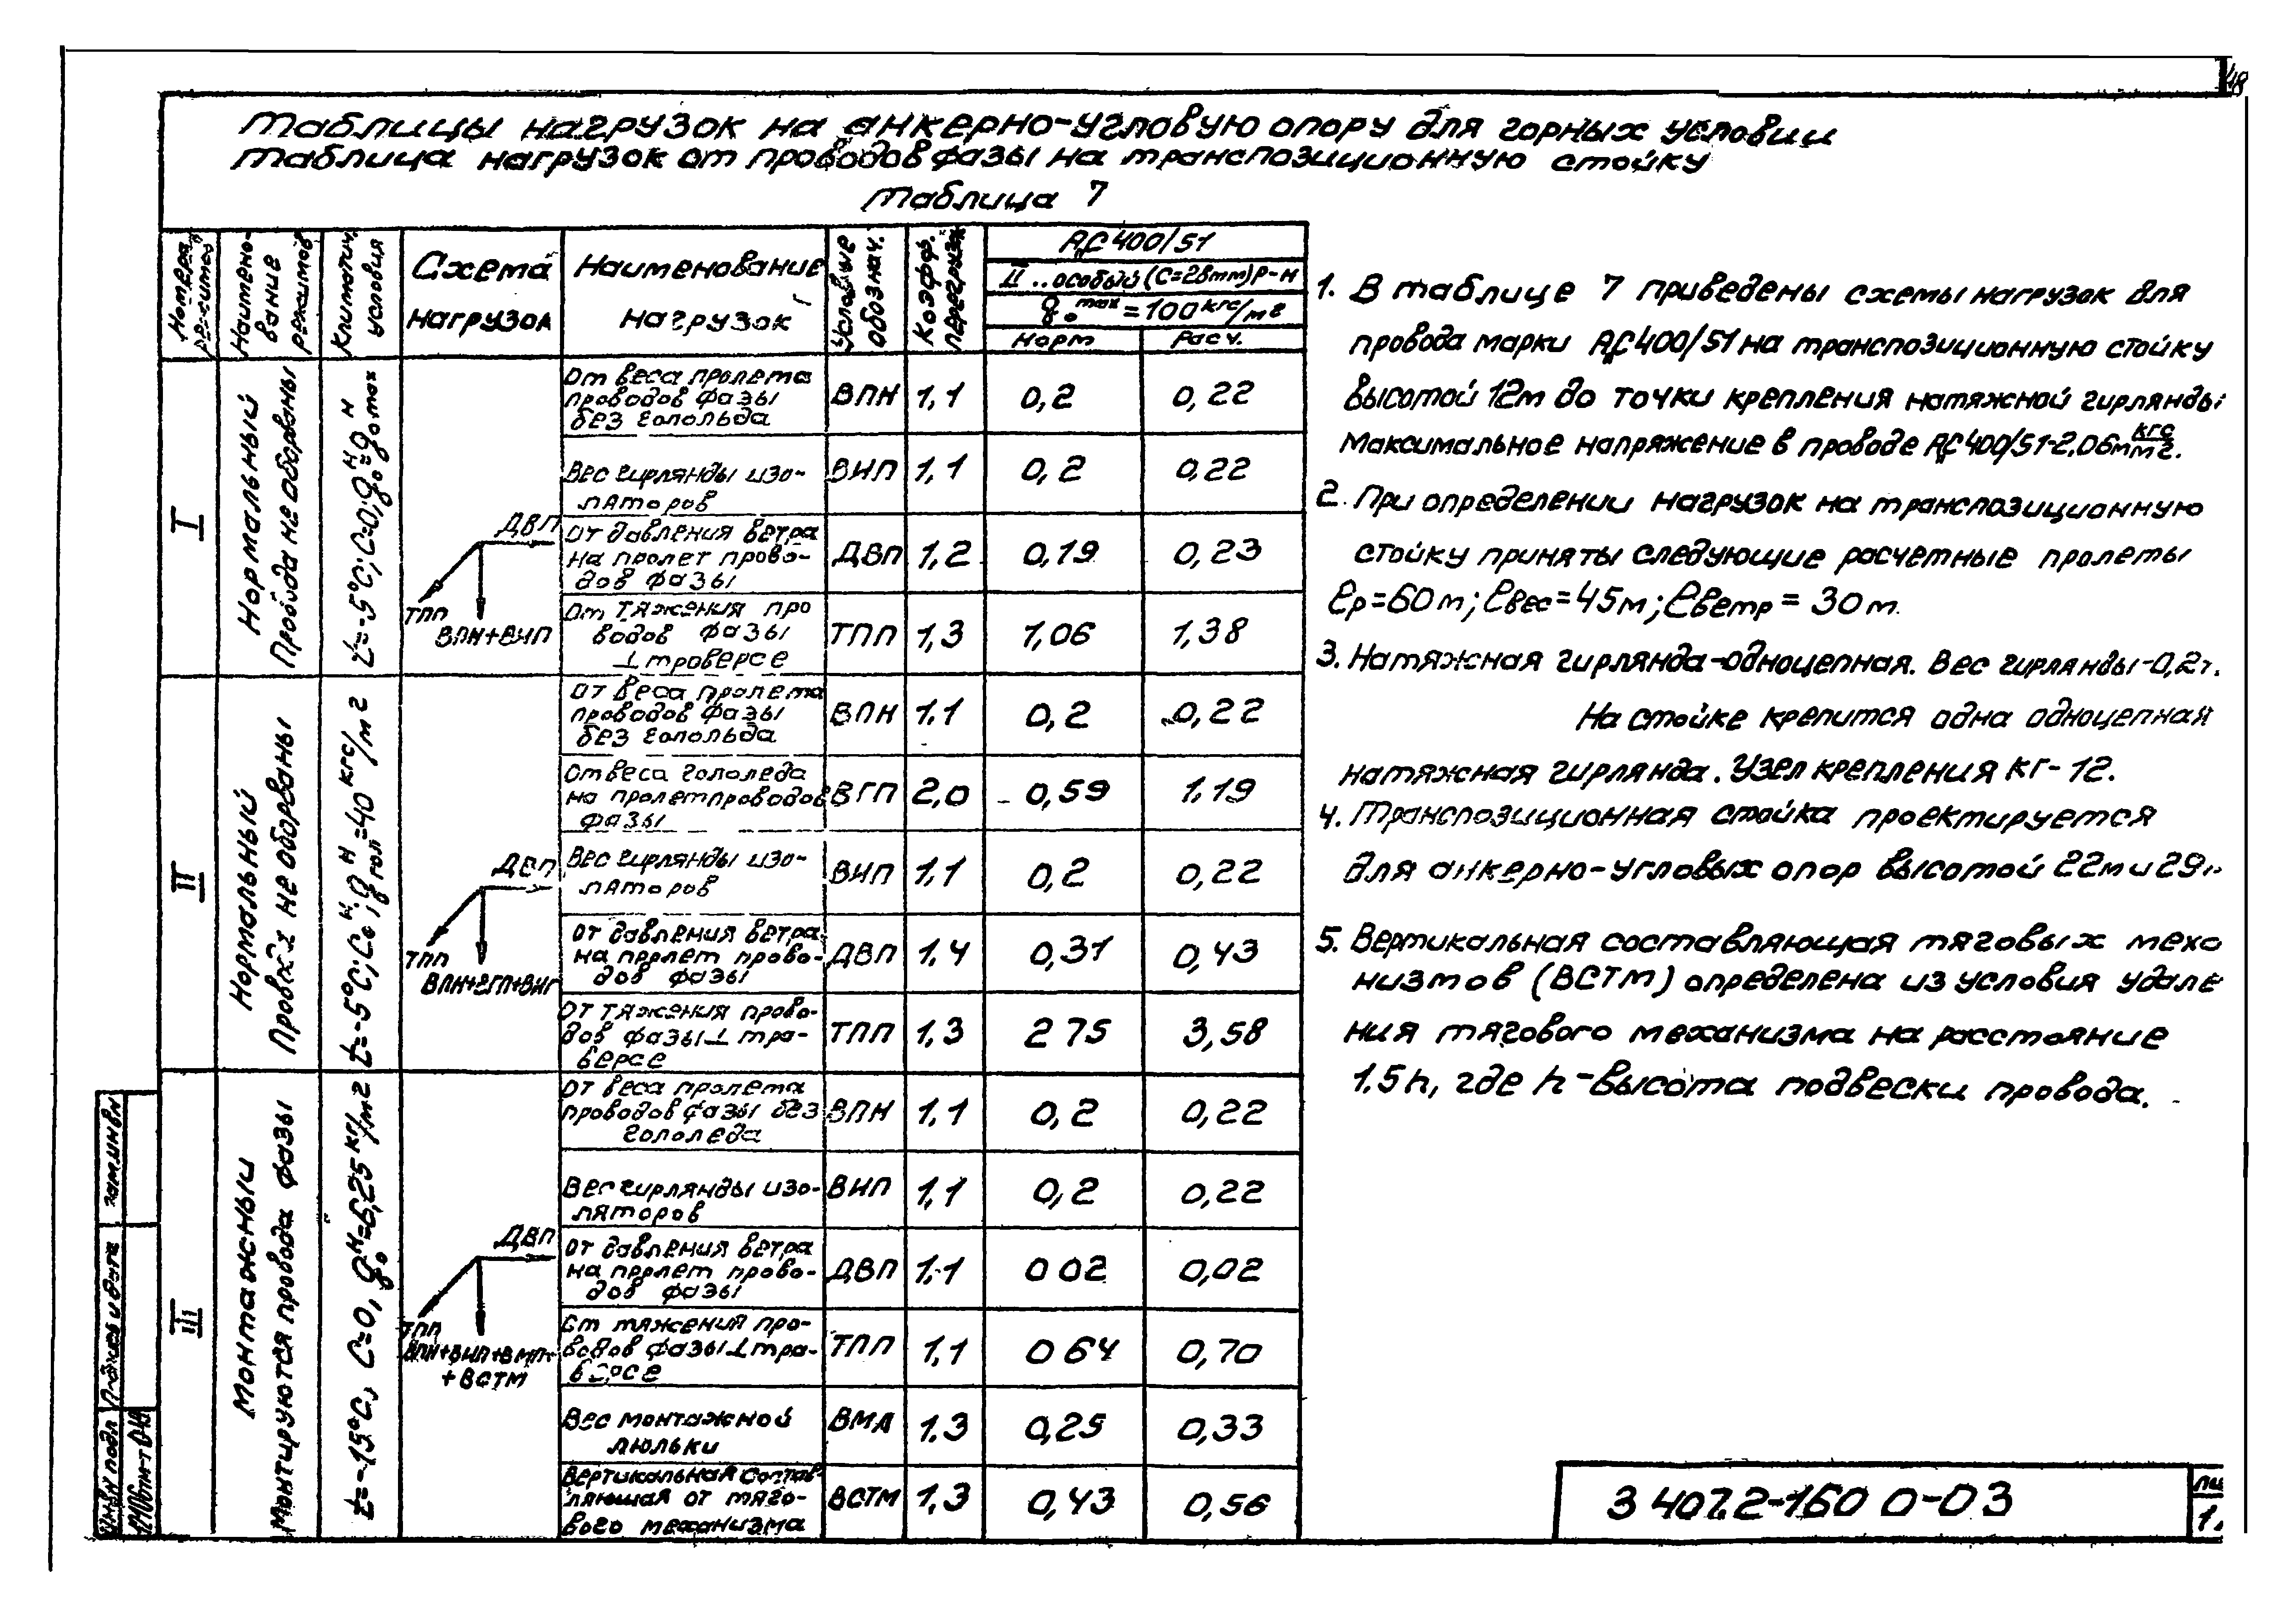 48
Таблицы нагрузок на анкерно-угловую опору для горных условии
Таблица нагрузок от проводов фазы на транспозиционную стойку
Таблица 7
Номера режимов
Наимено-
вание
режимов
Климатич.
условия
Схема
нагрузок
Наименование
нагрузок
Условные
обознач.
Коэфф.
перегрузк
АС 400/51
II.. особый (С=28мм) Р-Н
q₀ max = 100 кгс/м²
Норм
Расч.
I
Нормальный
Провода не оборваны
t=-5°C; C=0; q₀ᴴ=q₀ᴴmax
ДВП
ТПП
ВПН+ВИП
От веса пролета
проводов фазы
без голольда
ВПН 1,1 0,2 0,22
Вес гирлянды изо-
ляторов
ВИП 1,1 0,2 0,22
От давления ветра
на пролет прово-
дов фазы
ДВП 1,2 0,19 0,23
От тяжения про
водов фазы
⊥ троверсе
ТПП 1,3 1,06 1,38
II
Нормальный
Провода не оборваны
t=-5°C; C₀ᴴ; qᴴгол=40 кгс/м²
ДВП
ТПП
ВПН+ВГП+ВИГ
От веса пролета
проводов фазы
без голольда
ВПН 1.1 0,2 0,22
От веса гололеда
на пролет проводов
фазы
ВГП 2,0 0,59 1,19
Вес гирлянды изо-
ляторов
ВИП 1,1 0,2 0,22
От давления ветра
на пролет прово-
дов фазы
ДВП 1.4 0,31 0,43
От тяжения прово-
дов фазы ⊥ тра-
версе
ТПП 1,3 2 75 3,58
III
Монтажный
Монтируются провода фазы
t=-15°C, C=0, q₀ᴴ=6,25 кг/м²
ДВП
ТПП
+ВСТМ
От веса пролета
проводов фазы без
гололеда
ВПН 1,1 0,2 0,22
Вес гирлянды изо-
ляторов
ВИП 1,1 0,2 0,22
От давления ветра
на пролет прово-
дов фазы
ДВП 1.1 0 02 0,02
От тяжения про-
водов фазы ⊥ тра-
версе
ТПП 1,1 0 64 0,70
Вес монтажной
люльки
ВМЛ 1.3 0,25 0,33
Вертикальная состав-
ляющая от тяго-
вого механизма
ВСТМ 1,3 0,43 0,56
1. В таблице 7 приведены схемы нагрузок для
провода марки АС400/51 на транспозиционную стойку
высотой 12м до точки крепления натяжной гирлянды
Максимальное напряжение в проводе АС400/51-2,06 кгс/мм².
2. При определении нагрузок на транспозиционную
стойку приняты следующие расчетные пролеты
ℓр=60м; ℓвес=45м; ℓветр = 30м.
3. Натяжная гирлянда-одноцепная. Вес гирлянды-0,2т.
На стойке крепится одна одноцепная
натяжная гирлянда. Узел крепления КГ-12.
4. Транспозиционная стойка проектируется
для анкерно-угловых опор высотой 22м и 29м
5. Вертикальная составляющая тяговых меха
низмов (ВСТМ) определена из условия удале
ния тягового механизма на расстояние
1.5h, где h-высота подвески провода.
Инв.№ подл Подпись и дата
3 407.2-160 0-03